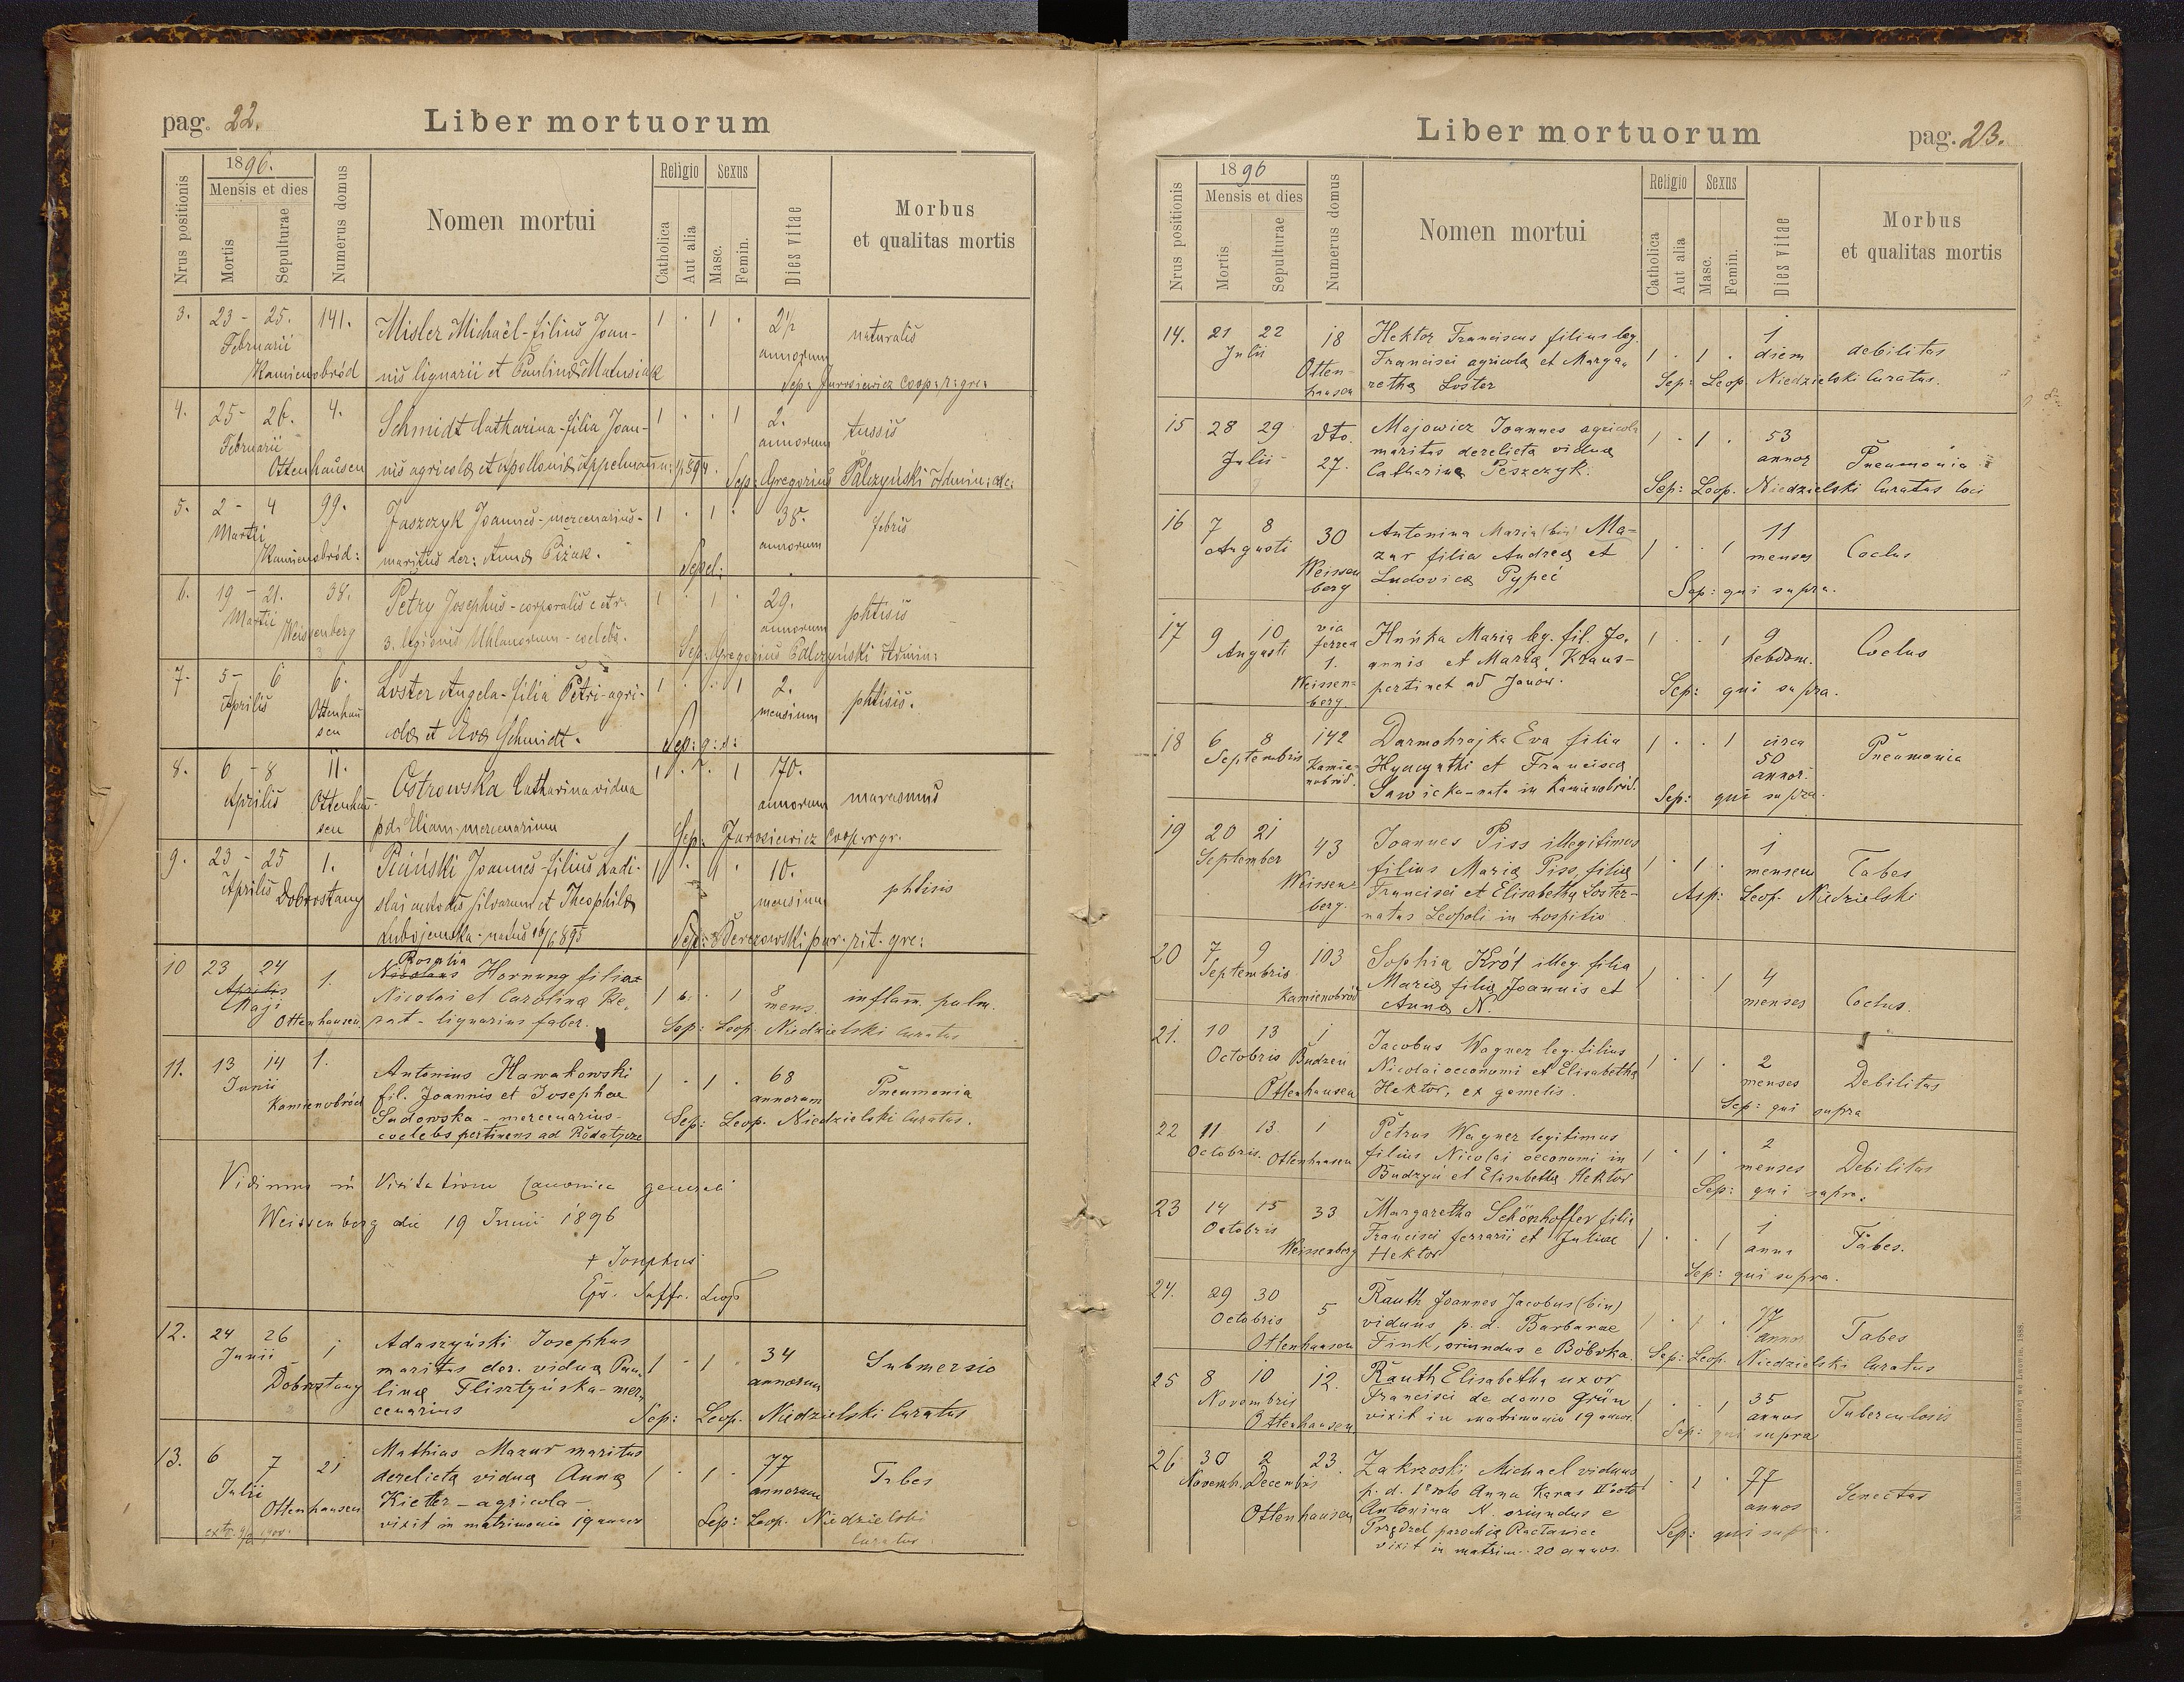 pag. 22.
Liber mortuorum
Nrus positionis
1896.
Mensis et dies
Mortis
Sepulturae
Numerus domus
Nomen mortui
Religio
Catholica
Aut alia
Sexus
Masc.
Femin.
Dies vitae
Morbus
et qualitas mortis
3. 23 - 25. 141. Misler Michaël - filius Joan- 1 . 1 . 2½ naturalis
Februarii annorum
Kamienobród nis lignarii et Paulinæ Matusiak Sep: Jarosiewicz Coop: r: gre:
4. 25 - 26. 4. Schmidt Catharina - filia Joan- 1 . . 1 2. tussis
Februarii annorum
Ottenhausen nis agricolæ et Apolloniæ Appelmann: Sep: Gregorius Palczyński Admin:
5. 2 - 4 99. Jaszczyk Joannes - mercenarius - 1 . 1 . 38. febris
Martii annorum
Kamienobród: maritus der: Annæ Piżak. Sepel:
6. 19 - 21. 38. Petry Josephus - corporalis e 1 . 1 . 29. phtisis
Martii annorum
Weissenberg 3. legionis Uhlanorum - coelebs. Sep: Gregorius Palczyński Admin:
7. 5 - 6 6. Loster Angela - filia Petri - agri- 1 . . 1 2. phtisis.
Aprilis Ottenhau mensium
sen colæ et Evæ Schmidt. Sep: q: s:
8. 6 - 8 11. Ostrowska Catharina vidua 1 . . 1 70. marasmus
Aprilis Ottenhau- annorum
sen p. d. Eliam - mercenarium Sep: Jarosiewicz Coop. r. gr.
9. 23 - 25 1. Joannes - filius Ladi- 1 . 1 . 10. phtisis
Aprilis Dobrostany slai custodis silvarum et Theophilæ mensium
natus 16/6 895 Sep: Derezowski par. rit. gre:
10 23 24 1. Rosalia
Nicolaus Hornung filia 1 . . 1 8 inflam. pulm.
Aprilis
Maji Nicolai et Carolinæ Re- mens.
Ottenhausen rat - lignarius faber. Sep: Leop. Niedzielski Curatus
11. 13 14 1. Antonius Hawakowski 1 . 1 . 68 Pneumonia
Junii fil. Joannis et Josephae annorum
Kamienobród Sudowska - mercenarius - Sep: Leop. Niedzielski Curatus.
coelebs pertinens ad Rodatycze
Vidimus in Visitatione Canonica generali
Weissenberg die 19 Junii 1896
+ Josephus
Eps. Suffr. Leop
12. 24 26 1 Adaszyński Josephus
Junii maritus der. vidua Pau- 1 . 1 . 34 Submersio
Dobrostany linæ Flisztyńska - mer- annorum
cenarius Sep: Leop. Niedzielski Curatus
13. 6 7 21 Mathias Mazur maritus
Julii derelicta vidua Anna 1 . 1 . 77 Tabes
Ottenhausen Kieffer - agricola - annorum
vixit in matrimonio 19 annos Sep: Leop. Niedzielski
Curatus
Liber mortuorum
pag. 23.
Nrus positionis
1896
Mensis et dies
Mortis
Sepulturae
Numerus domus
Nomen mortui
Religio
Catholica
Aut alia
Sexus
Masc.
Femin.
Dies vitae
Morbus
et qualitas mortis
14. 21 22 18 Hektor Franciscus filius leg. 1
Julii Otten- Francisci agricolæ et Marga- 1 . 1 . diem debilitas
hausen rethæ Loster Sep: Leop. Niedzielski Curatus.
15 28 29 dto. Majowicz Joannes agricola 1 . 1 . 53
Julii 27. maritus derelicta vidua annor Pneumonia
Catharina Peszczyk. Sep: Leop. Niedzielski Curatus loci
16 7 8 30 Antonina Maria (bin) Ma- 11
Augusti zur filia Andreæ et 1 . . 1 menses Coclus
Weissen Ludovicæ Pypeć
berg Sep: qui supra.
17 9 10 via Huńka Maria leg. fil. Jo- 1 . . 1 9 Coclus
Augusti ferrea annis et Mariæ Kraus- hebdom.
1. pertinet ad Janow.
Weissen- Sep: qui supra.
berg.
18 6 8 142 Darmohrajka Eva filia 1 . . 1 circa Pneumonia
Septembris Kamie- Hyacynthi et Franciscæ 50
nobród. Sawicka - nata in Kamienobród. annor.
Sep: qui supra.
19 20 21 43 Joannes Piss illegitimus
September filius Mariæ Piss, filiæ 1 . 1 . 1
Weissen- Francisci et Elisabethæ Loster - mensem Tabes
berg. natus Leopoli in hospitio Asp: Leop. Niedzielski
20 7 9 103 Sophia Król illeg. filia
Septembris Mariæ filiæ Joannis et 1 . . 1 4
Kamienobród Anna N. menses Coclus.
21. 10 13 1 Jacobus Wagner leg. filius
Octobris Budzeń Nicolai oeconomi et Elisabethæ 1 . 1 . 2
Ottenhausen Hektor, ex gemelis. menses Debilitas
Sep: qui supra
22 11 13 1 Petrus Wagner legitimus
Octobris. Ottenhausen filius Nicolai oeconomi in 1 . 1 . 2
Budzyń et Elisabethæ Hektor menses Debilitas
Sep: qui supra.
23 14 15 33 Margaretha Schönhoffer filia
Octobris Francisci ferrarii et Juliae 1 . . 1 1
Weissenberg Hektor anni Tabes.
Sep: qui supra.
24. 29 30 5 Rauth Joannes Jacobus (bin)
Octobris viduus p. d. Barbarae 1 . 1 . 77
Ottenhausen Fink, oriundus e Bóbrka. annor Tabes
Sep: Leop. Niedzielski Curatus
25 8 10 12. Rauth Elisabetha uxor
Novembris Francisci de domo Grün 1 . . 1 35
Ottenhausen vixit in matrimonio 19 annos. annos Tuberculosis
Sep: qui supra
26 30 2 23. Zakrzoski Michael viduus
Novemb. Decembris p. d. 1º voto Anna Karas IIº voto 1 . 1 77
Ottenhausen Antonina N. oriundus e annos Senectus
Przędzel parochiæ Racławice Sep: qui supra.
vixit in matrim. 20 annos.
Nakładem Drukarni Ludowej we Lwowie. 1888.